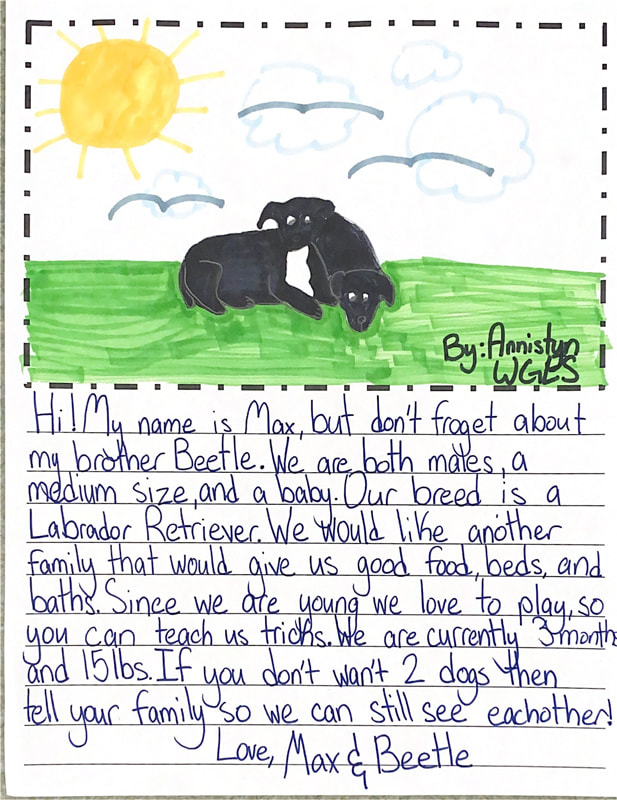 By: Annistyn
WGES
Hi! My name is Max, but don't froget about
my brother Beetle. We are both males, a
medium size, and a baby. Our breed is a
Labrador Retriever. We would like another
family that would give us good food, beds, and
baths. Since we are young we love to play, so
you can teach us tricks. We are currently 3 months
and 15lbs. If you don't wan't 2 dogs then
tell your family so we can still see eachother!
Love, Max & Beetle